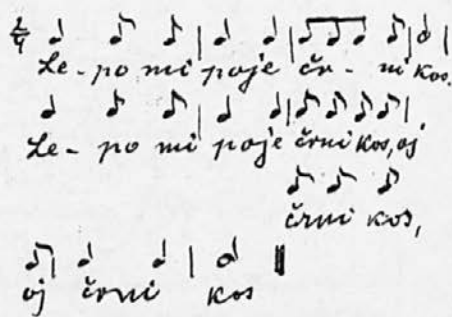 2/4
Le-po mi poje čr-ni kos.
Le-po mi poje črni kos, oj
črni kos,
oj črni kos